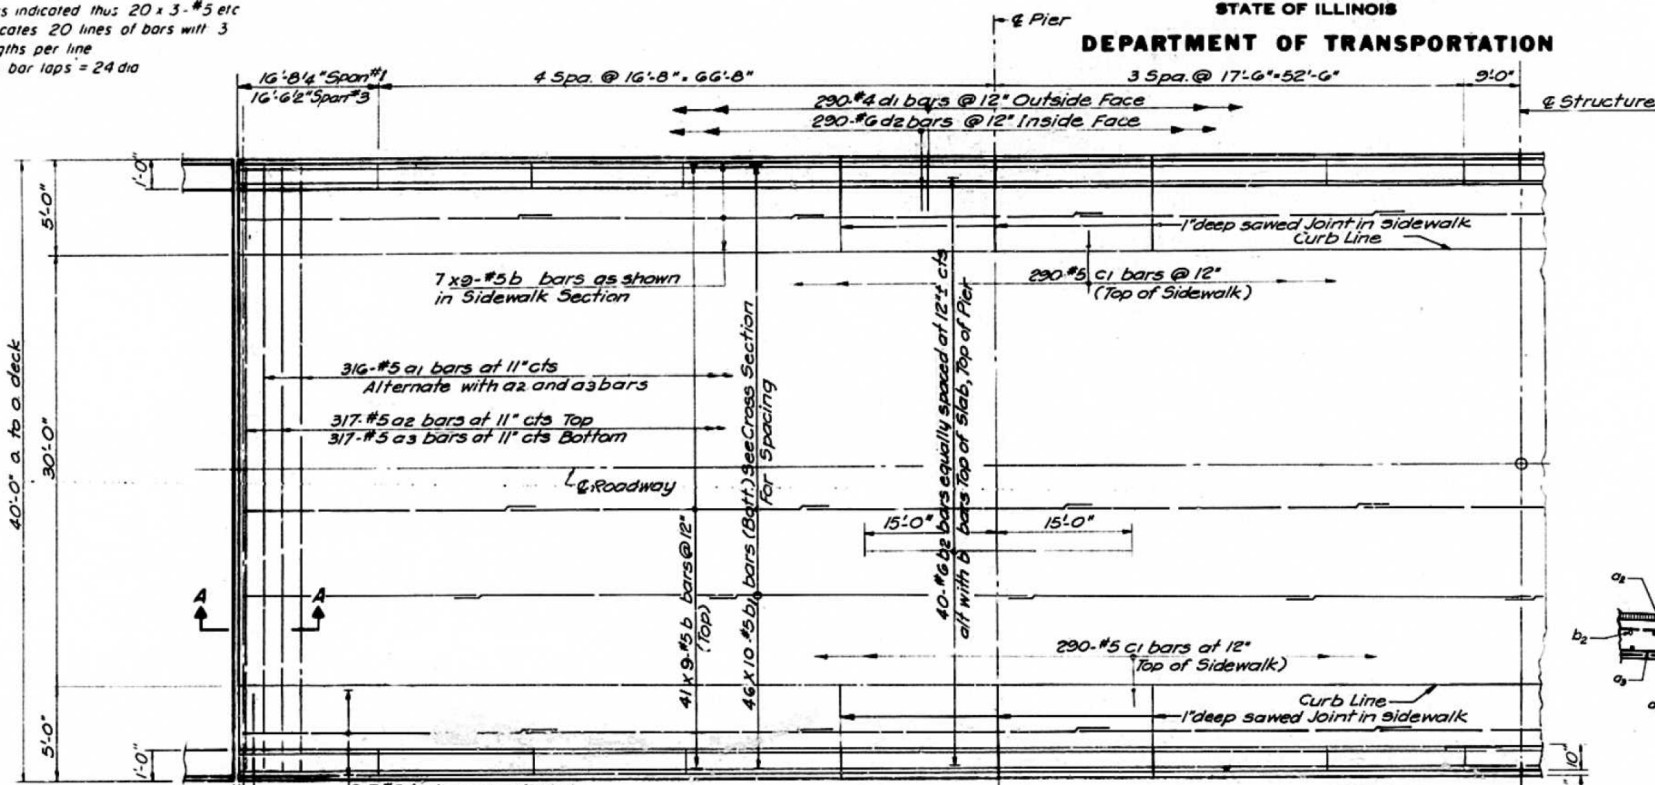 s indicated thus 20 x 3-#5 etc
cates 20 lines of bars with 3
gths per line
bar laps = 24 dia
STATE OF ILLINOIS
DEPARTMENT OF TRANSPORTATION
℄ Pier
16'-8¼" Span #1
16'-6½" Span #3
4 Spa. @ 16'-8" = 66'-8"
3 Spa. @ 17'-6" = 52'-6"
9'-0"
℄ Structure
290-#4 d1 bars @ 12" Outside Face
290-#6 d2 bars @ 12" Inside Face
1'-0"
5'-0"
1" deep sawed Joint in sidewalk
Curb Line
7 x 9-#5 b bars as shown
in Sidewalk Section
290-#5 c1 bars @ 12"
(Top of Sidewalk)
40'-0" a to a deck
30'-0"
316-#5 a1 bars at 11" cts
Alternate with a2 and a3 bars
317-#5 a2 bars at 11" cts Top
317-#5 a3 bars at 11" cts Bottom
℄ Roadway
41 x 9-#5 b bars @ 12"
(Top)
46 x 10-#5 b1 bars (Bott.) See Cross Section
For Spacing
40-#6 b2 bars equally spaced at 12"± cts
alt with b bars Top of Slab, Top of Pier
15'-0"
15'-0"
A
A
a2
b2
a3
290-#5 c1 bars at 12"
Top of Sidewalk)
Curb Line
1" deep sawed Joint in sidewalk
5'-0"
1'-0"
10"